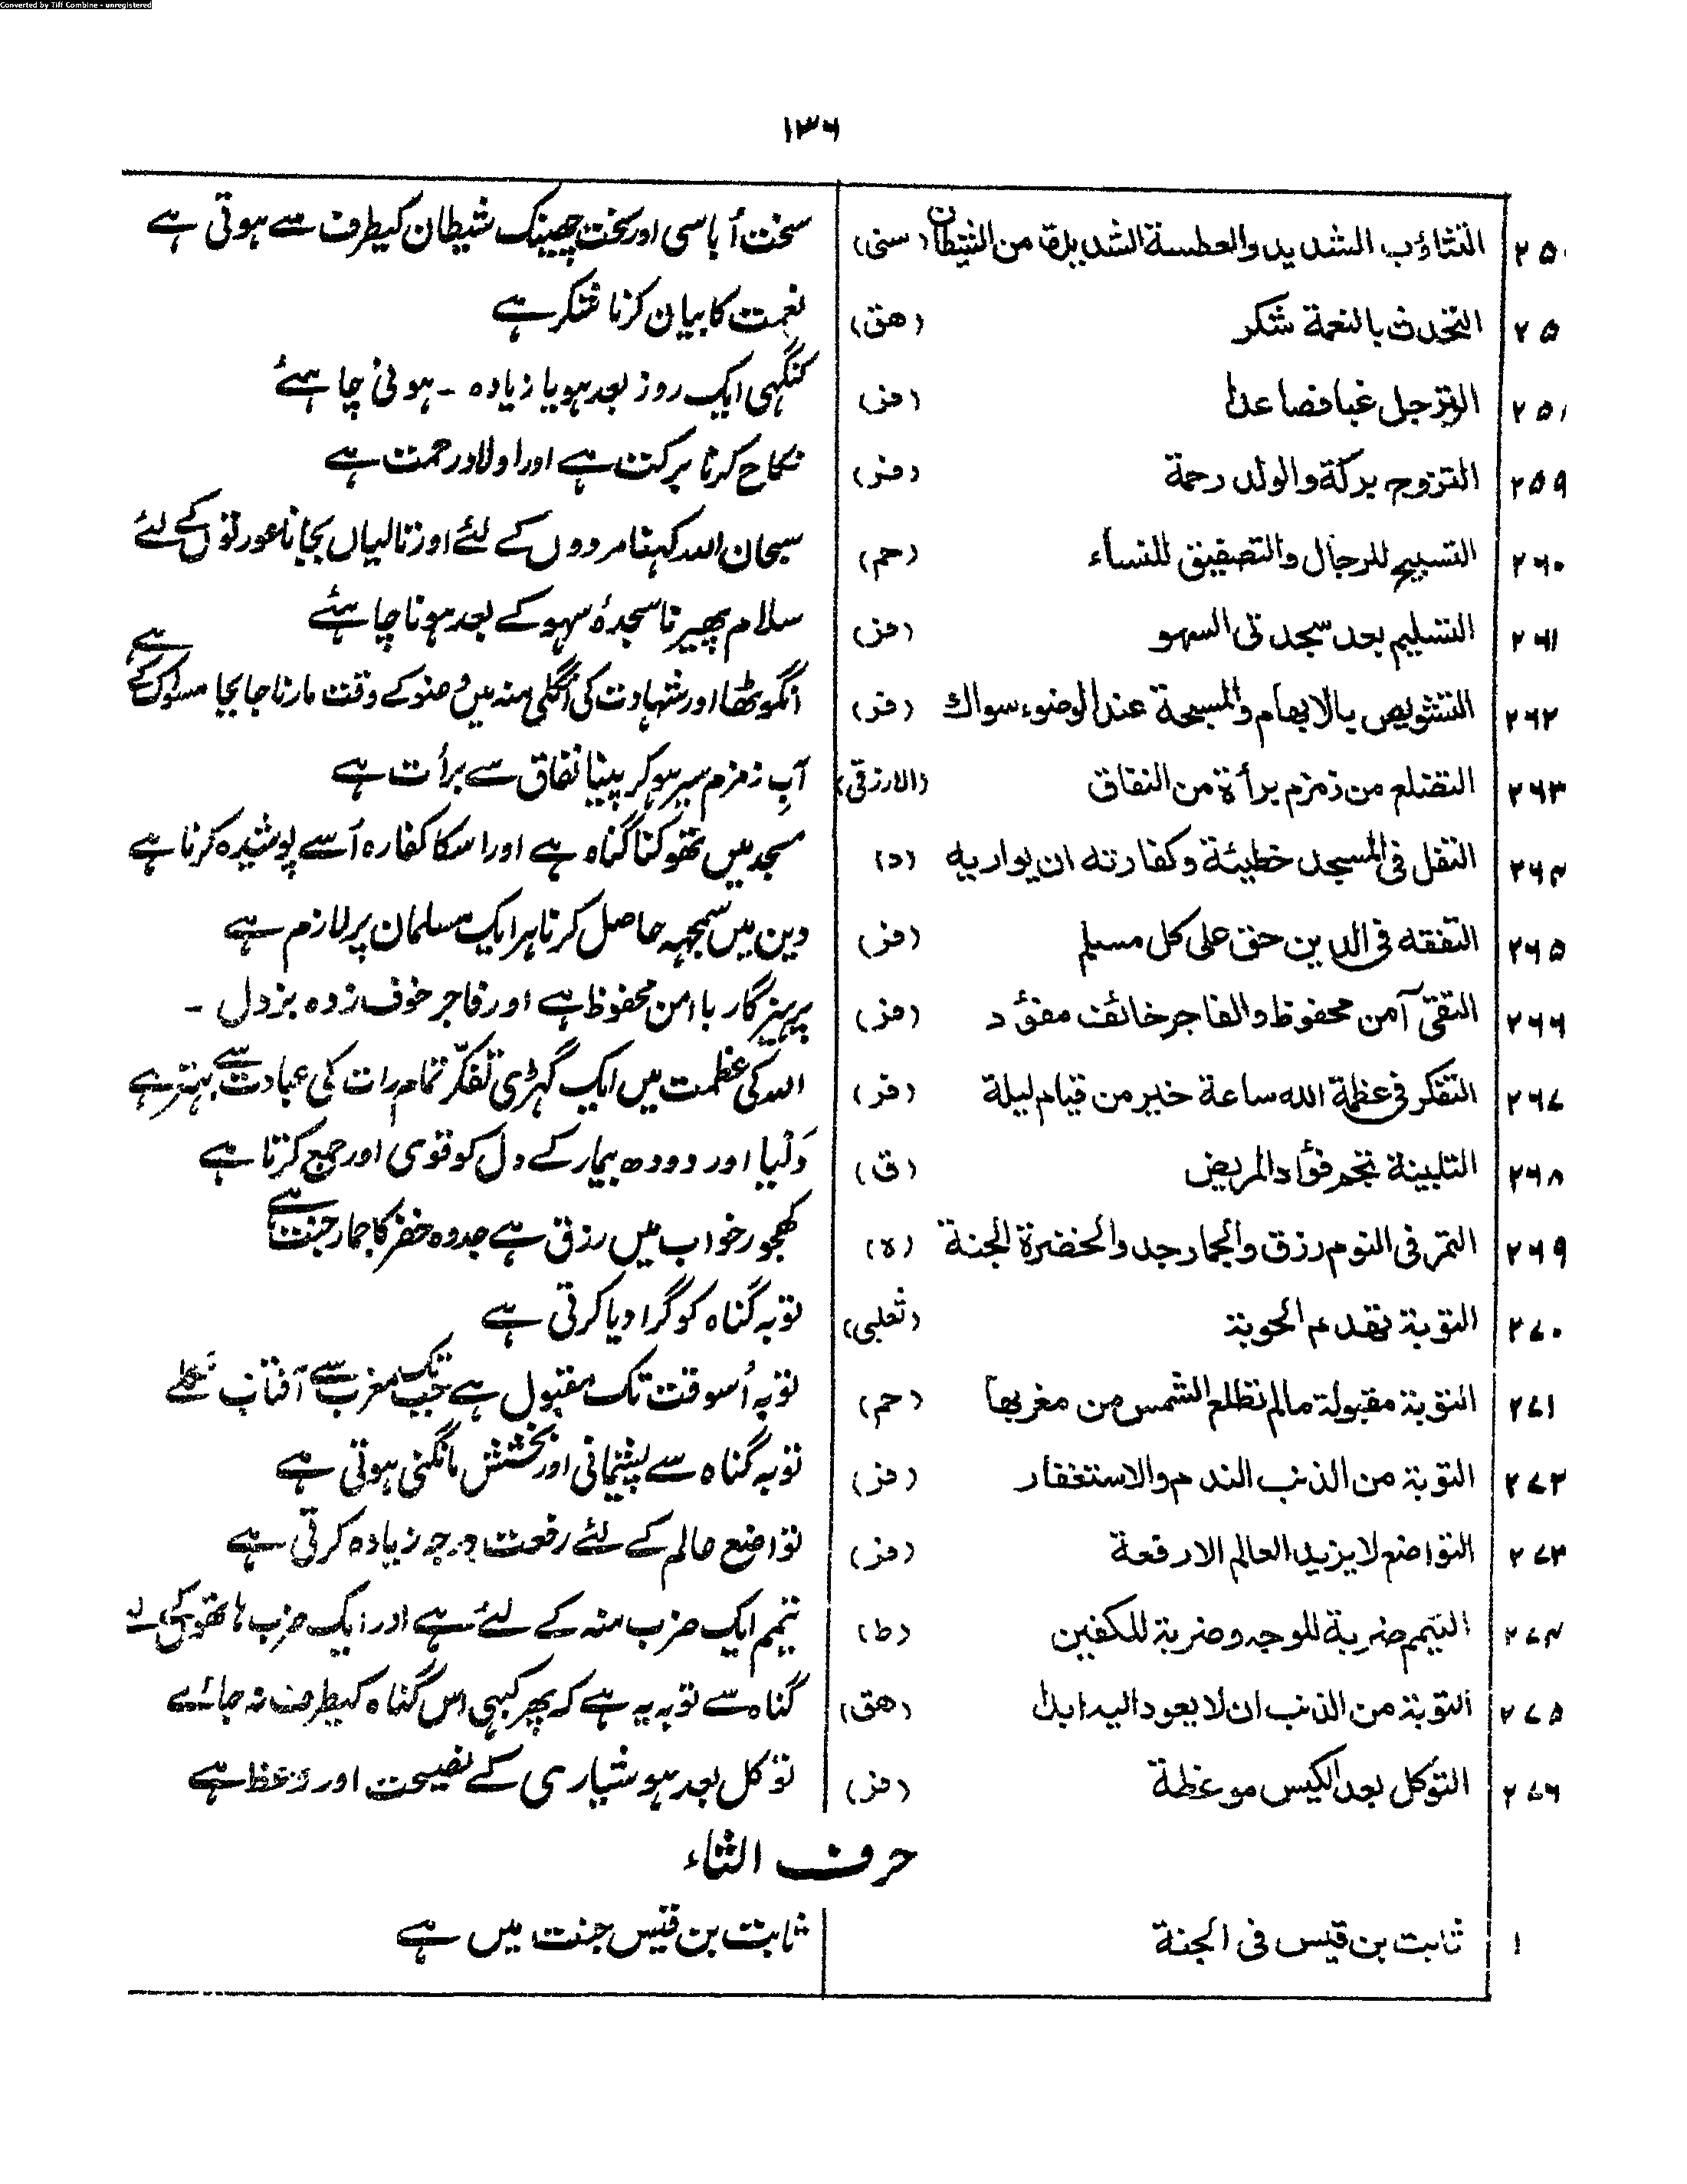 Converted by Tiff Combine - unregistered
۱۳۶
۲۵۰ التثاؤب الشديد والعطسة الشديدة من الشيطان (سنى) سخت أباسی اور سخت چھینک شیطان کیطرف سے ہوتی ہے
۲۵ التحدث بالنعمة شكر (هق) نعمت کا بیان کرنا شکر ہے
۲۵۸ الترجل غبا فصاعدا (فر) کنگہی ایک روز بعد ہو یا زیادہ ۔ ہونی چاہئے
۲۵۹ التزوج بركة والولد رحمة (فر) نکاح کرنا برکت ہے اور اولاد رحمت ہے
۲۶۰ التسبيح للرجال والتصفيق للنساء (حم) سبحان اللہ کہنا مردوں کے لئے اور تالیاں بجانا عورتوں کے لئے ہے
۲۶۱ التسليم بعد سجدتى السهو (فر) سلام پھیرنا سجدۂ سہو کے بعد ہونا چاہئے
۲۶۲ التشويص بالابهام والمسبحة عند الوضوء سواك (فر) انگوٹھا اور شہادت کی انگلی منہ میں وضو کے وقت مارنا جابجا مسواک کے
۲۶۳ التضلع من زمزم برأة من النفاق (الارزقى) آبِ زمزم سیر ہو کر پینا نفاق سے برأت ہے
۲۶۴ التفل فى المسجد خطيئة وكفارته ان يواريه (د) مسجد میں تھوکنا گناہ ہے اور اسکا کفارہ اُسے پوشیدہ کرنا ہے
۲۶۵ التفقه فى الدين حق على كل مسلم (فر) دین میں سمجہہ حاصل کرنا ہر ایک مسلمان پر لازم ہے
۲۶۶ التقى آمن محفوظ والفاجر خائف مفؤد (فر) پرہیزگار با امن محفوظ ہے اور فاجر خوف زدہ بزدل ۔
۲۶۷ التفكر فى عظمة الله ساعة خير من قيام ليلة (فر) اللہ کی عظمت میں ایک گہڑی تفکّر تمام رات کی عبادت سے بہتر ہے
۲۶۸ التلبينة تجم فؤاد المريض (ق) دَلْیا اور دودھ بیمار کے دل کو قوی اور جمع کرتا ہے
۲۶۹ التمر فى النوم رزق والجمار جد والخضرة الجنة (ه) کھجور خواب میں رزق ہے جد وہ خضر کا جمار جنت ہے
۲۷۰ التوبة تهدم الحوبة (ثعلبى) توبہ گناہ کو گرا دیا کرتی ہے
۲۷۱ التوبة مقبولة مالم تطلع الشمس من مغربها (حم) توبہ اُسوقت تک مقبول ہے جب تک مغرب سے آفتاب نکلے
۲۷۲ التوبة من الذنب الندم والاستغفار (فر) توبہ گناہ سے پشیمانی اور بخشش مانگنی ہوتی ہے
۲۷۳ التواضع لا يزيد العالم الا رفعة (فر) تواضع عالم کے لئے رفعت درجہ زیادہ کرتی ہے
۲۷۴ التيمم ضربة للوجه وضربة للكفين (ط) تیمم ایک ضرب منہ کے لئے ہے اور ایک ضرب ہاتھو کے لے
۲۷۵ التوبة من الذنب ان لا يعود اليه ابدا (هق) گناہ سے توبہ یہ ہے کہ پھر کبہی اس گناہ کیطرف نہ جائے
۲۷۶ التوكل بعد الكيس موعظة (فر) توکل بعد ہوشیاری کے نصیحت اور وعظ ہے
حرف الثاء
۱ ثابت بن قيس فى الجنة ثابت بن قیس جنت میں ہے